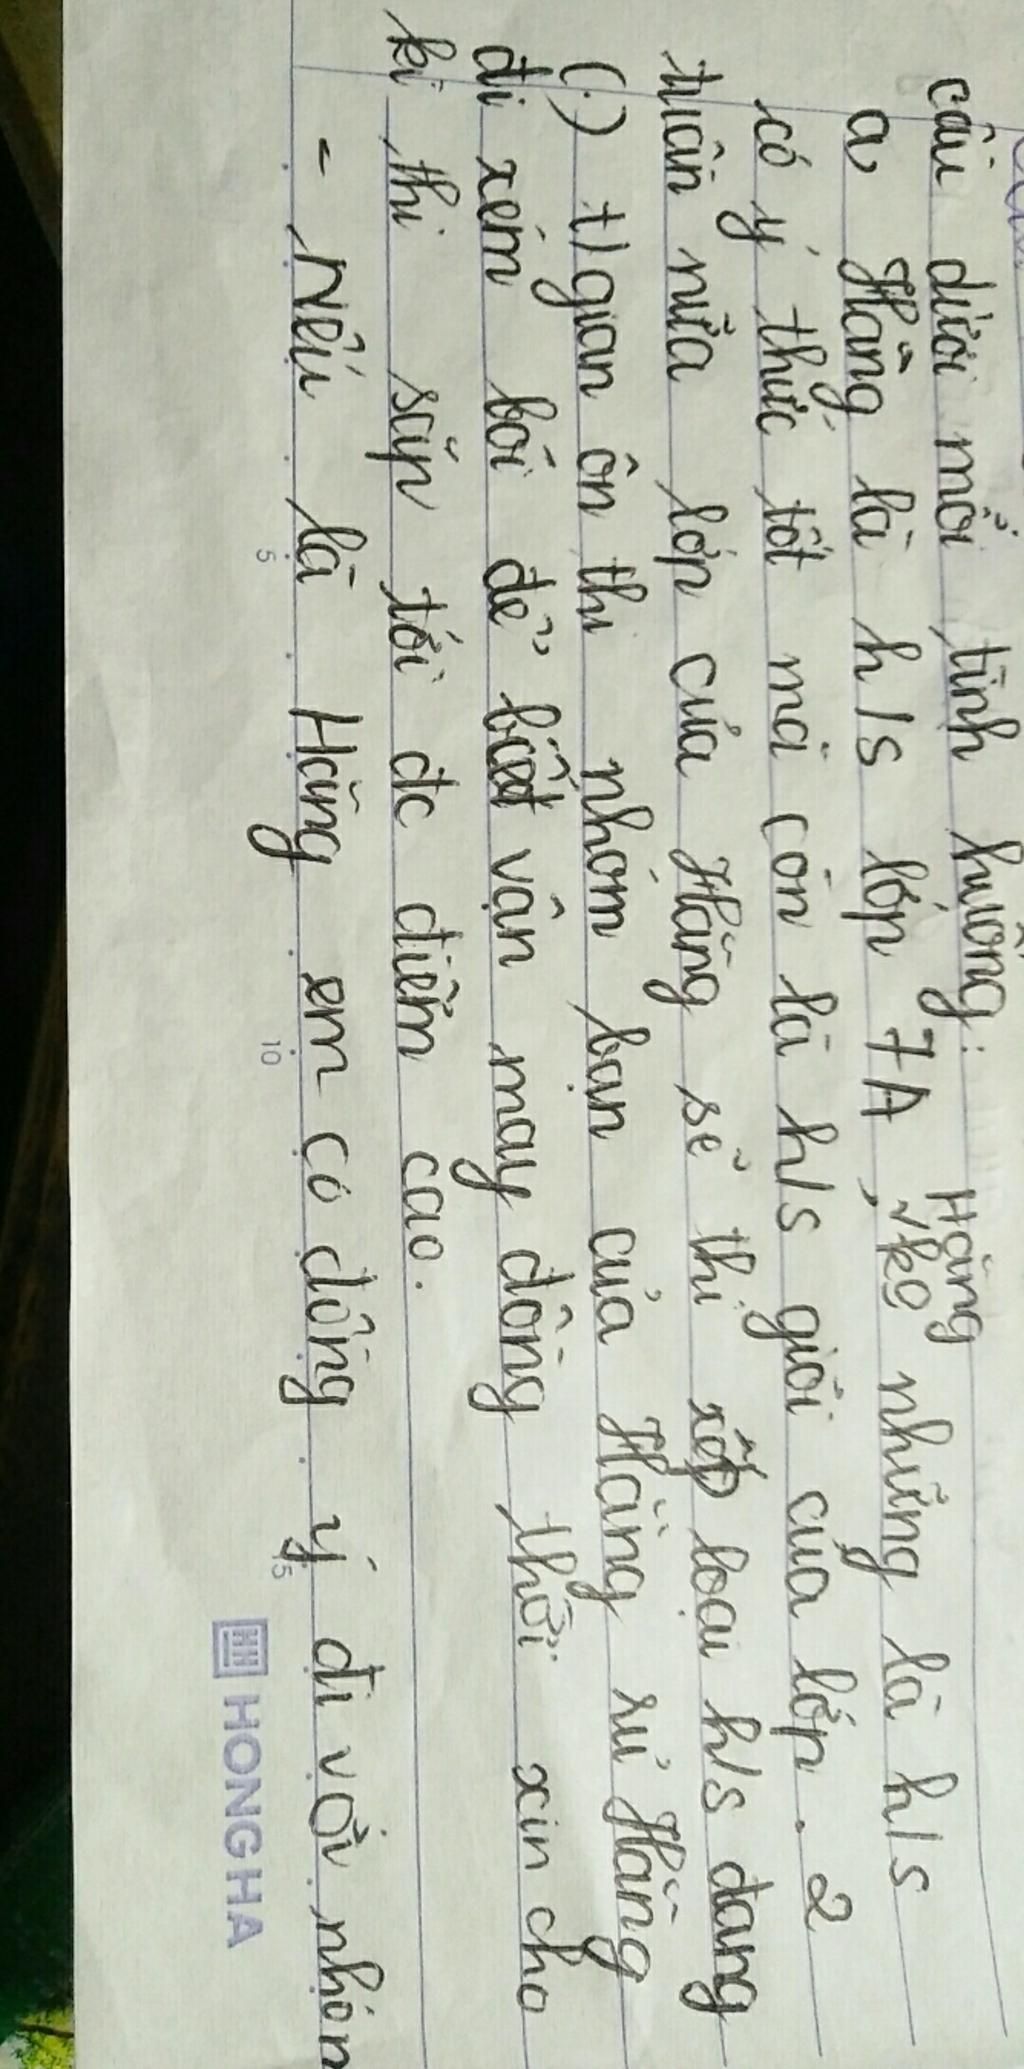 câu dưới mỗi tình huống:
a, Hằng là h/s lớp 7A, Hằng ko những là h/s
có ý thức tốt mà còn là h/s giỏi của lớp. 2
tuần nữa lớp của Hằng sẽ thi xếp loại h/s đang
(.) t/gian ôn thi nhóm bạn của Hằng rủ Hằng
đi xem bói để biết vận may đồng thời xin cho
kì thi sắp tới đc điểm cao.
- Nếu là Hằng em có đồng ý đi với nhóm
5 10 15
HONG HA